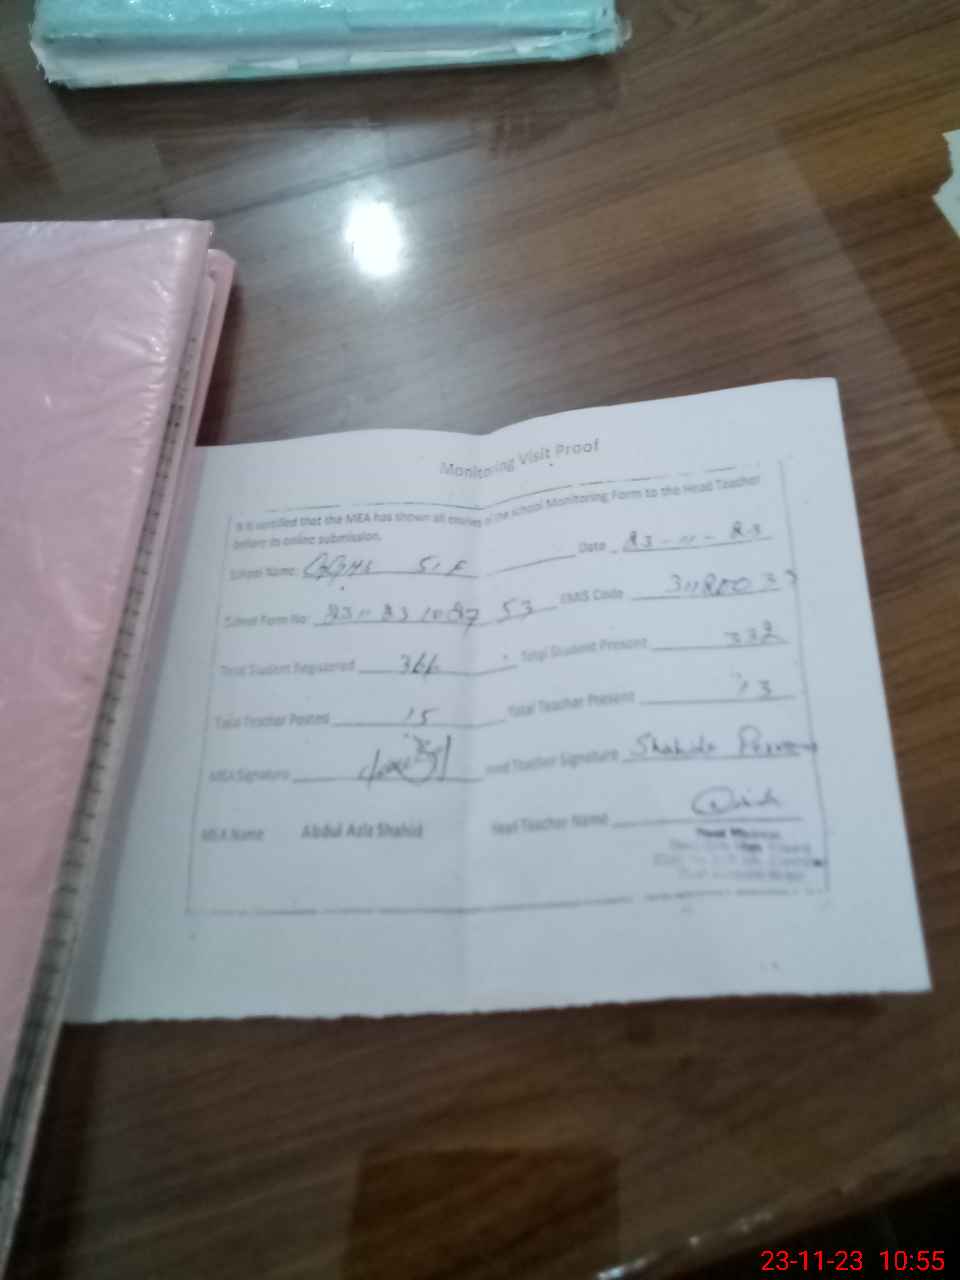 Monitoring Visit Proof
It is certified that the MEA has shown all entries of the school Monitoring Form to the Head Teacher
before its online submission.
School Name: GGHS Date 23-11-23
School Form No: EMIS Code
Total Student Registered 366 Total Student Present 332
Total Teacher Posted 15 Total Teacher Present 13
MEA Signature Head Teacher Signature Shahida Parveen
MEA Name Abdul Aziz Shahid Head Teacher Name
Head Mistress
23-11-23 10:55